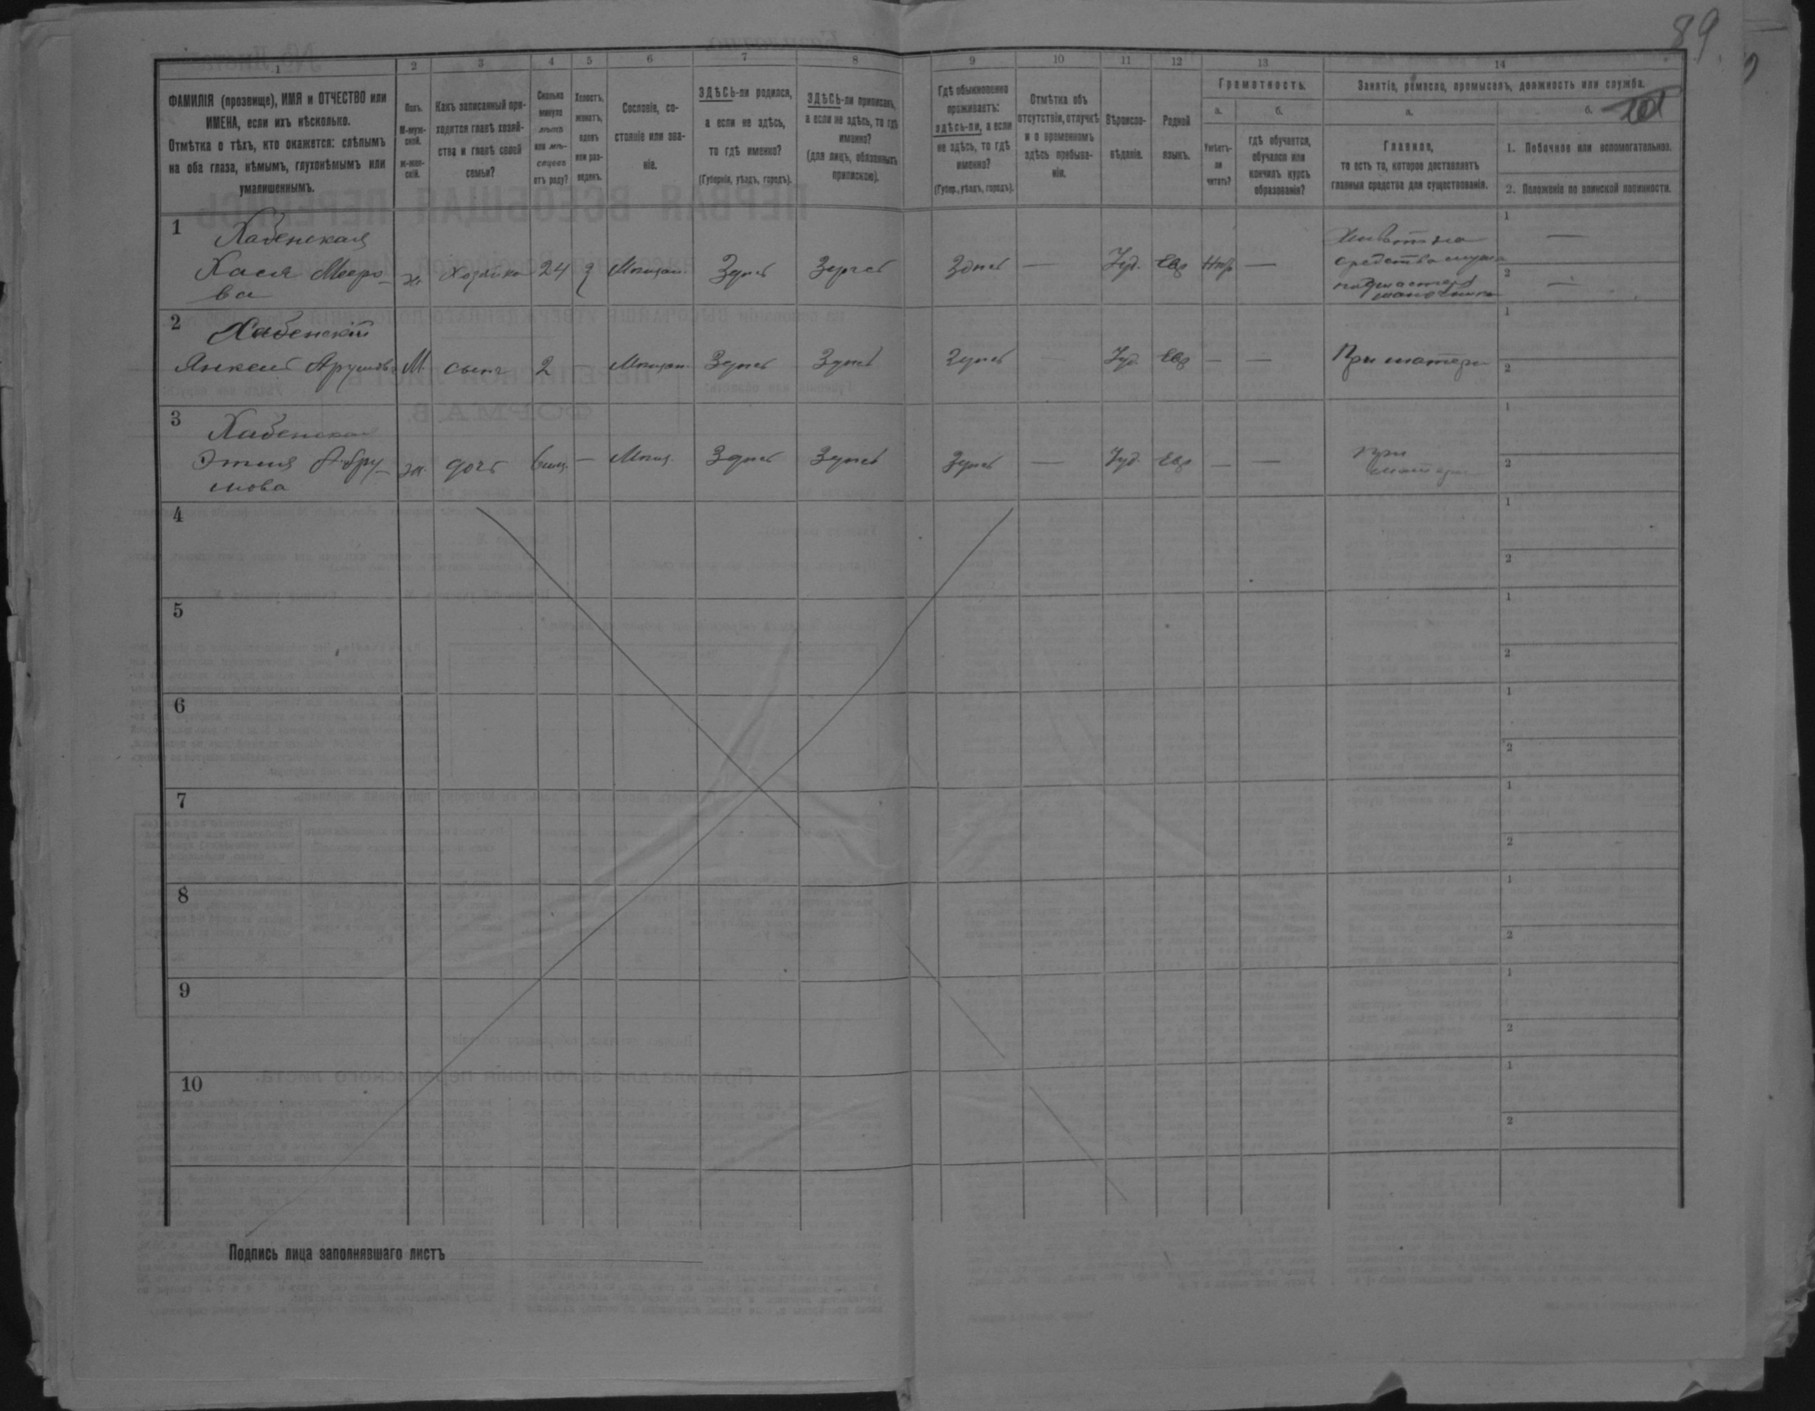 89.
1 2 3 4 5 6 7 8 9 10 11 12 13 14
ФАМИЛІЯ (прозвище), ИМЯ и ОТЧЕСТВО или
ИМЕНА, если ихъ нѣсколько.
Отмѣтка о тѣхъ, кто окажется: слѣпымъ
на оба глаза, нѣмымъ, глухонѣмымъ или
умалишеннымъ.
Полъ.
М-муж-
ской.
ж-жен-
скій.
Какъ записанный при-
ходится главѣ хозяй-
ства и главѣ своей
семьи?
Сколько
минуло
лѣтъ
или мѣ-
сяцевъ
отъ роду?
Холостъ,
женатъ,
вдовъ
или раз-
веденъ.
Сословіе, со-
стояніе или зва-
ніе.
ЗДѢСЬ-ли родился,
а если не здѣсь,
то гдѣ именно?
(Губернія, уѣздъ, городъ).
ЗДѢСЬ-ли приписанъ,
а если не здѣсь, то гдѣ
именно?
(для лицъ, обязанныхъ
припискою).
Гдѣ обыкновенно
проживаетъ:
здѣсь-ли, а если
не здѣсь, то гдѣ
именно?
(Губер., уѣздъ, городъ).
Отмѣтка объ
отсутствіи, отлучкѣ
и о временномъ
здѣсь пребыва-
ніи.
Вѣроиспо-
вѣданіе.
Родной
языкъ.
Грамотность.
а. б.
Умѣетъ-
ли
читать?
гдѣ обучается,
обучался или
кончилъ курсъ
образованія?
Занятіе, ремесло, промыселъ, должность или служба.
а. б.
Главное,
то есть то, которое доставляетъ
главныя средства для существованія.
1. Побочное или вспомогательное.
2. Положеніе по воинской повинности.
1 Хабенская
Хася Мееро-
ва
ж. Хозяйка 24 З Мещан. Здѣсь Здѣсь Здѣсь — Іуд. Евр Нѣтъ —
Живетъ на
средства мужа
1 —
2 —
2 Хабенскій
Янкель М сынъ 2 — Мещан. Здѣсь Здѣсь Здѣсь — Іуд. Евр — — При матери
1
2
3 Хабенская
ж. дочь 6 мѣс. — Мещ. Здѣсь Здѣсь Здѣсь — Іуд. Евр — — При
матери
1
2
4 1
2
5 1
2
6 1
2
7 1
2
8 1
2
9 1
2
10 1
2
Подпись лица заполнявшаго листъ